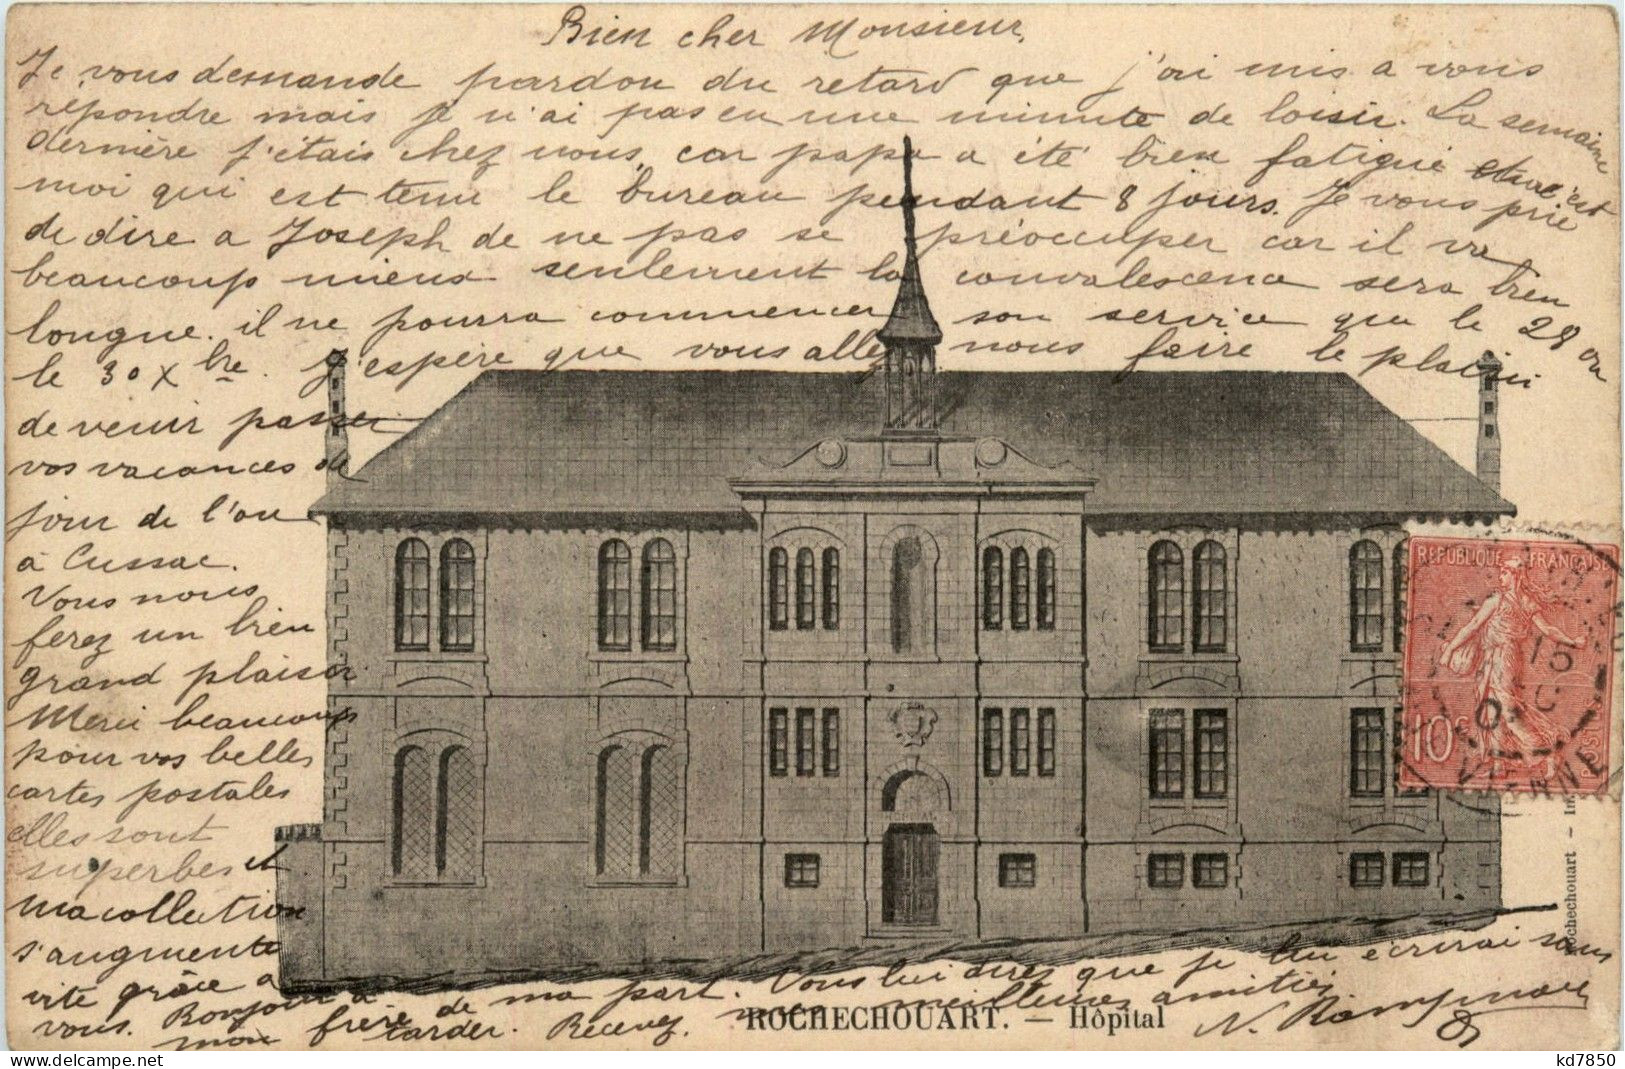 Bien cher Monsieur,
Je vous demande pardon du retard que j'ai mis a vous
répondre mais je n'ai pas eu une minute de loisir. La semaine
dernière j'étais chez nous, car papa a été bien fatigué et c'est
moi qui est tenu le bureau pendant 8 jours. Je vous prie
de dire a Joseph de ne pas se préoccuper car il va
beaucoup mieux seulement la convalescence sera bien
longue. il ne pourra commencer son service que le 28 ou
le 30 Xbre. J'espère que vous allez nous faire le plaisir
de venir passer
vos vacances du
jour de l'an
à Cussac.
Vous nous
ferez un bien
grand plaisir
Merci beaucoup
pour vos belles
cartes postales
elles sont
superbes et
ma collection
s'augmente
vite grâce a
vous. Bonjour a
mon frère de ma part. Vous lui direz que je lui écrirai sans
tarder. Recevez mes meilleures amitiés
N.
REPUBLIQUE FRANÇAISE
10c
POSTES
15
VIENNE
ROCHECHOUART. — Hôpital
Rochechouart - Im
kd7850